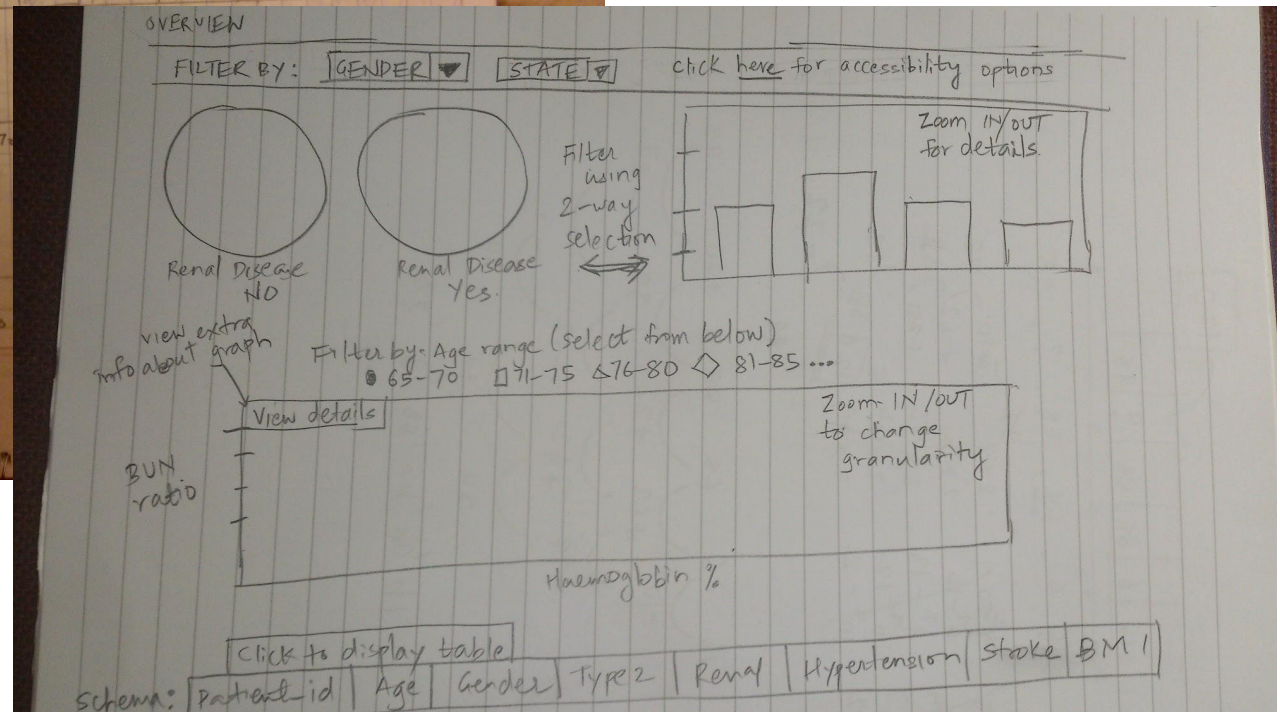 OVERVIEW
FILTER BY: GENDER STATE click here for accessibility options
Renal Disease
NO
Renal Disease
Yes.
Filter
using
2-way
selection
Zoom IN/OUT
for details.
view extra
info about graph
Filter by: Age range (select from below)
65-70 71-75 76-80 81-85 ...
View details
Zoom IN/OUT
to change
granularity
BUN
ratio
Haemoglobin %
Click to display table
Schema: Patient_id Age Gender Type 2 Renal Hypertension Stroke BMI